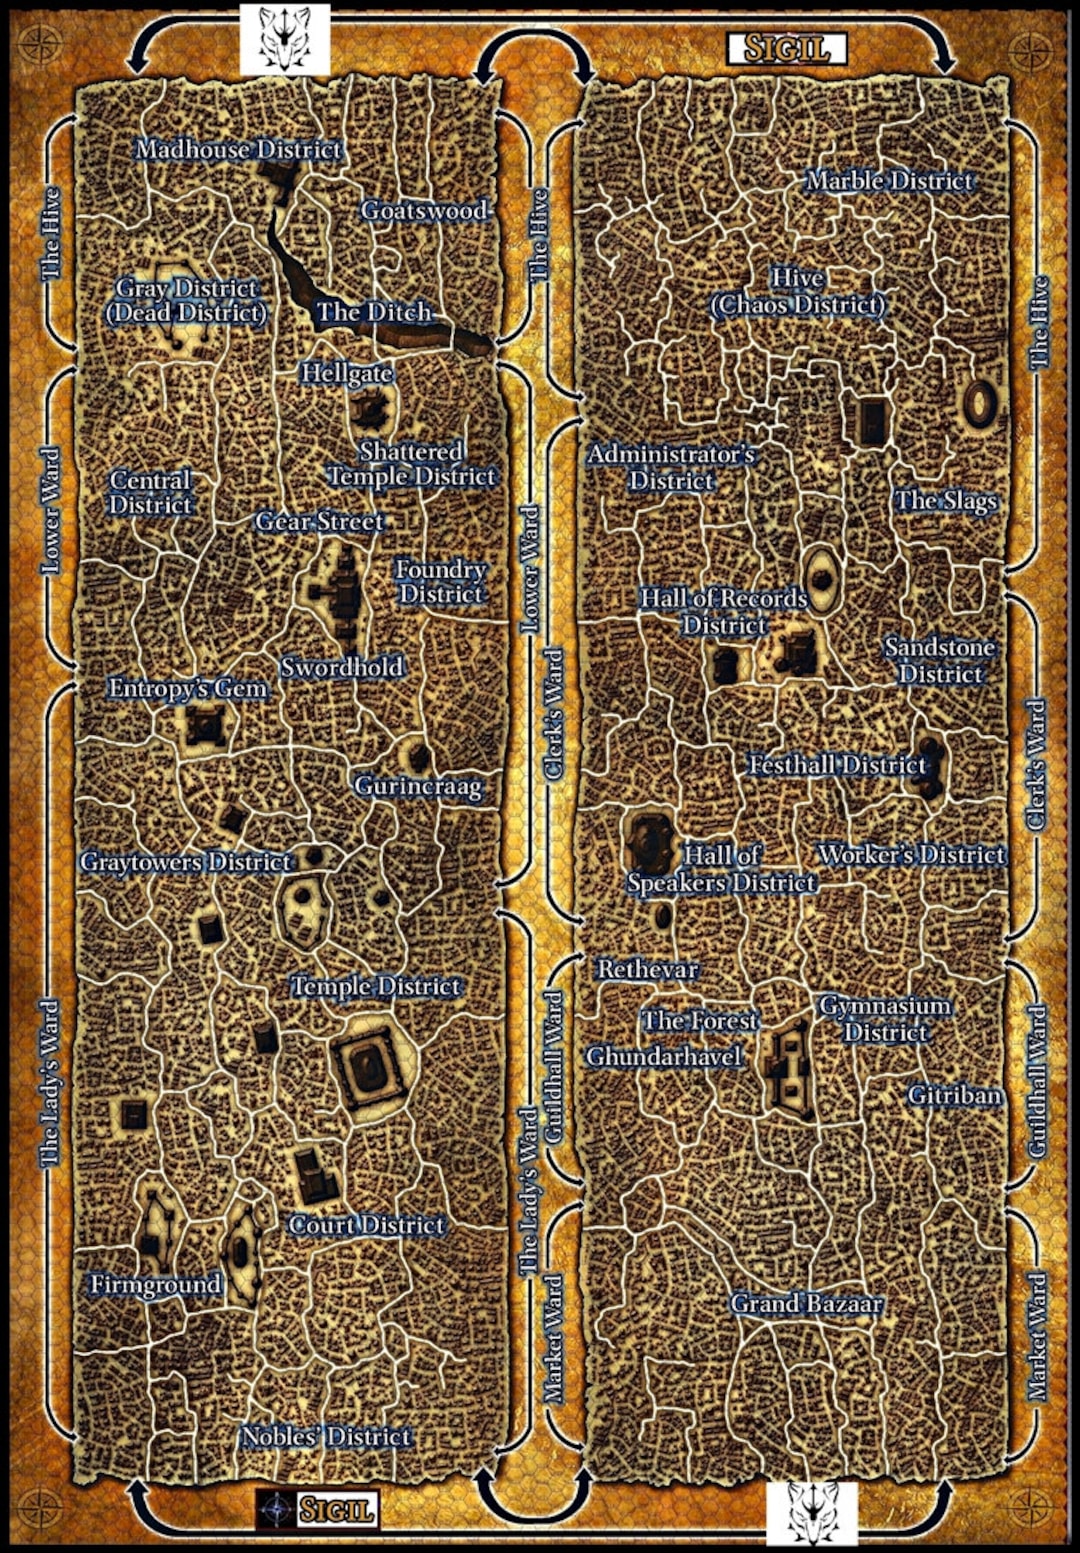 SIGIL
Madhouse District
Goatswood
The Hive
Gray District
(Dead District)
The Ditch
Hellgate
Shattered
Temple District
Central
District
Gear Street
Foundry
District
Lower Ward
Swordhold
Entropy's Gem
Gurincraag
Graytowers District
Temple District
The Lady's Ward
Court District
Firmground
Nobles' District
The Hive
Lower Ward
The Lady's Ward
The Hive
Clerk's Ward
Guildhall Ward
Market Ward
Marble District
Hive
(Chaos District)
Administrator's
District
The Slags
Hall of Records
District
Sandstone
District
Festhall District
Hall of
Speakers District
Worker's District
Rethevar
The Forest
Gymnasium
District
Ghundarhavel
Gitriban
Grand Bazaar
Clerk's Ward
Guildhall Ward
Market Ward
SIGIL